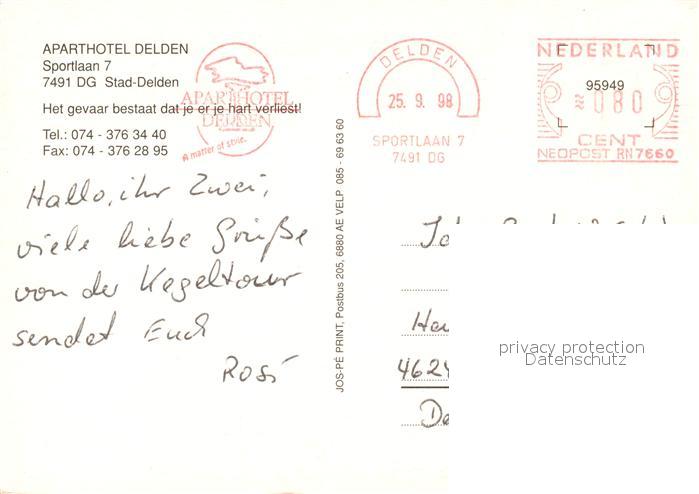 APARTHOTEL DELDEN
Sportlaan 7
7491 DG Stad-Delden
Het gevaar bestaat dat je er je hart verliest!
Tel.: 074 - 376 34 40
Fax: 074 - 376 28 95
APARTHOTEL
DELDEN
A matter of style.
DELDEN
25. 9. 98
SPORTLAAN 7
7491 DG
NEDERLAND
95949
≈080
CENT
NEOPOST RN7660
Hallo, ihr Zwei,
viele liebe Grüße
von der Kegeltour
sendet Euch
Rosi
JOS-PÉ PRINT, Postbus 205, 6880 AE VELP 085 - 69 63 60
4624
privacy protection
Datenschutz